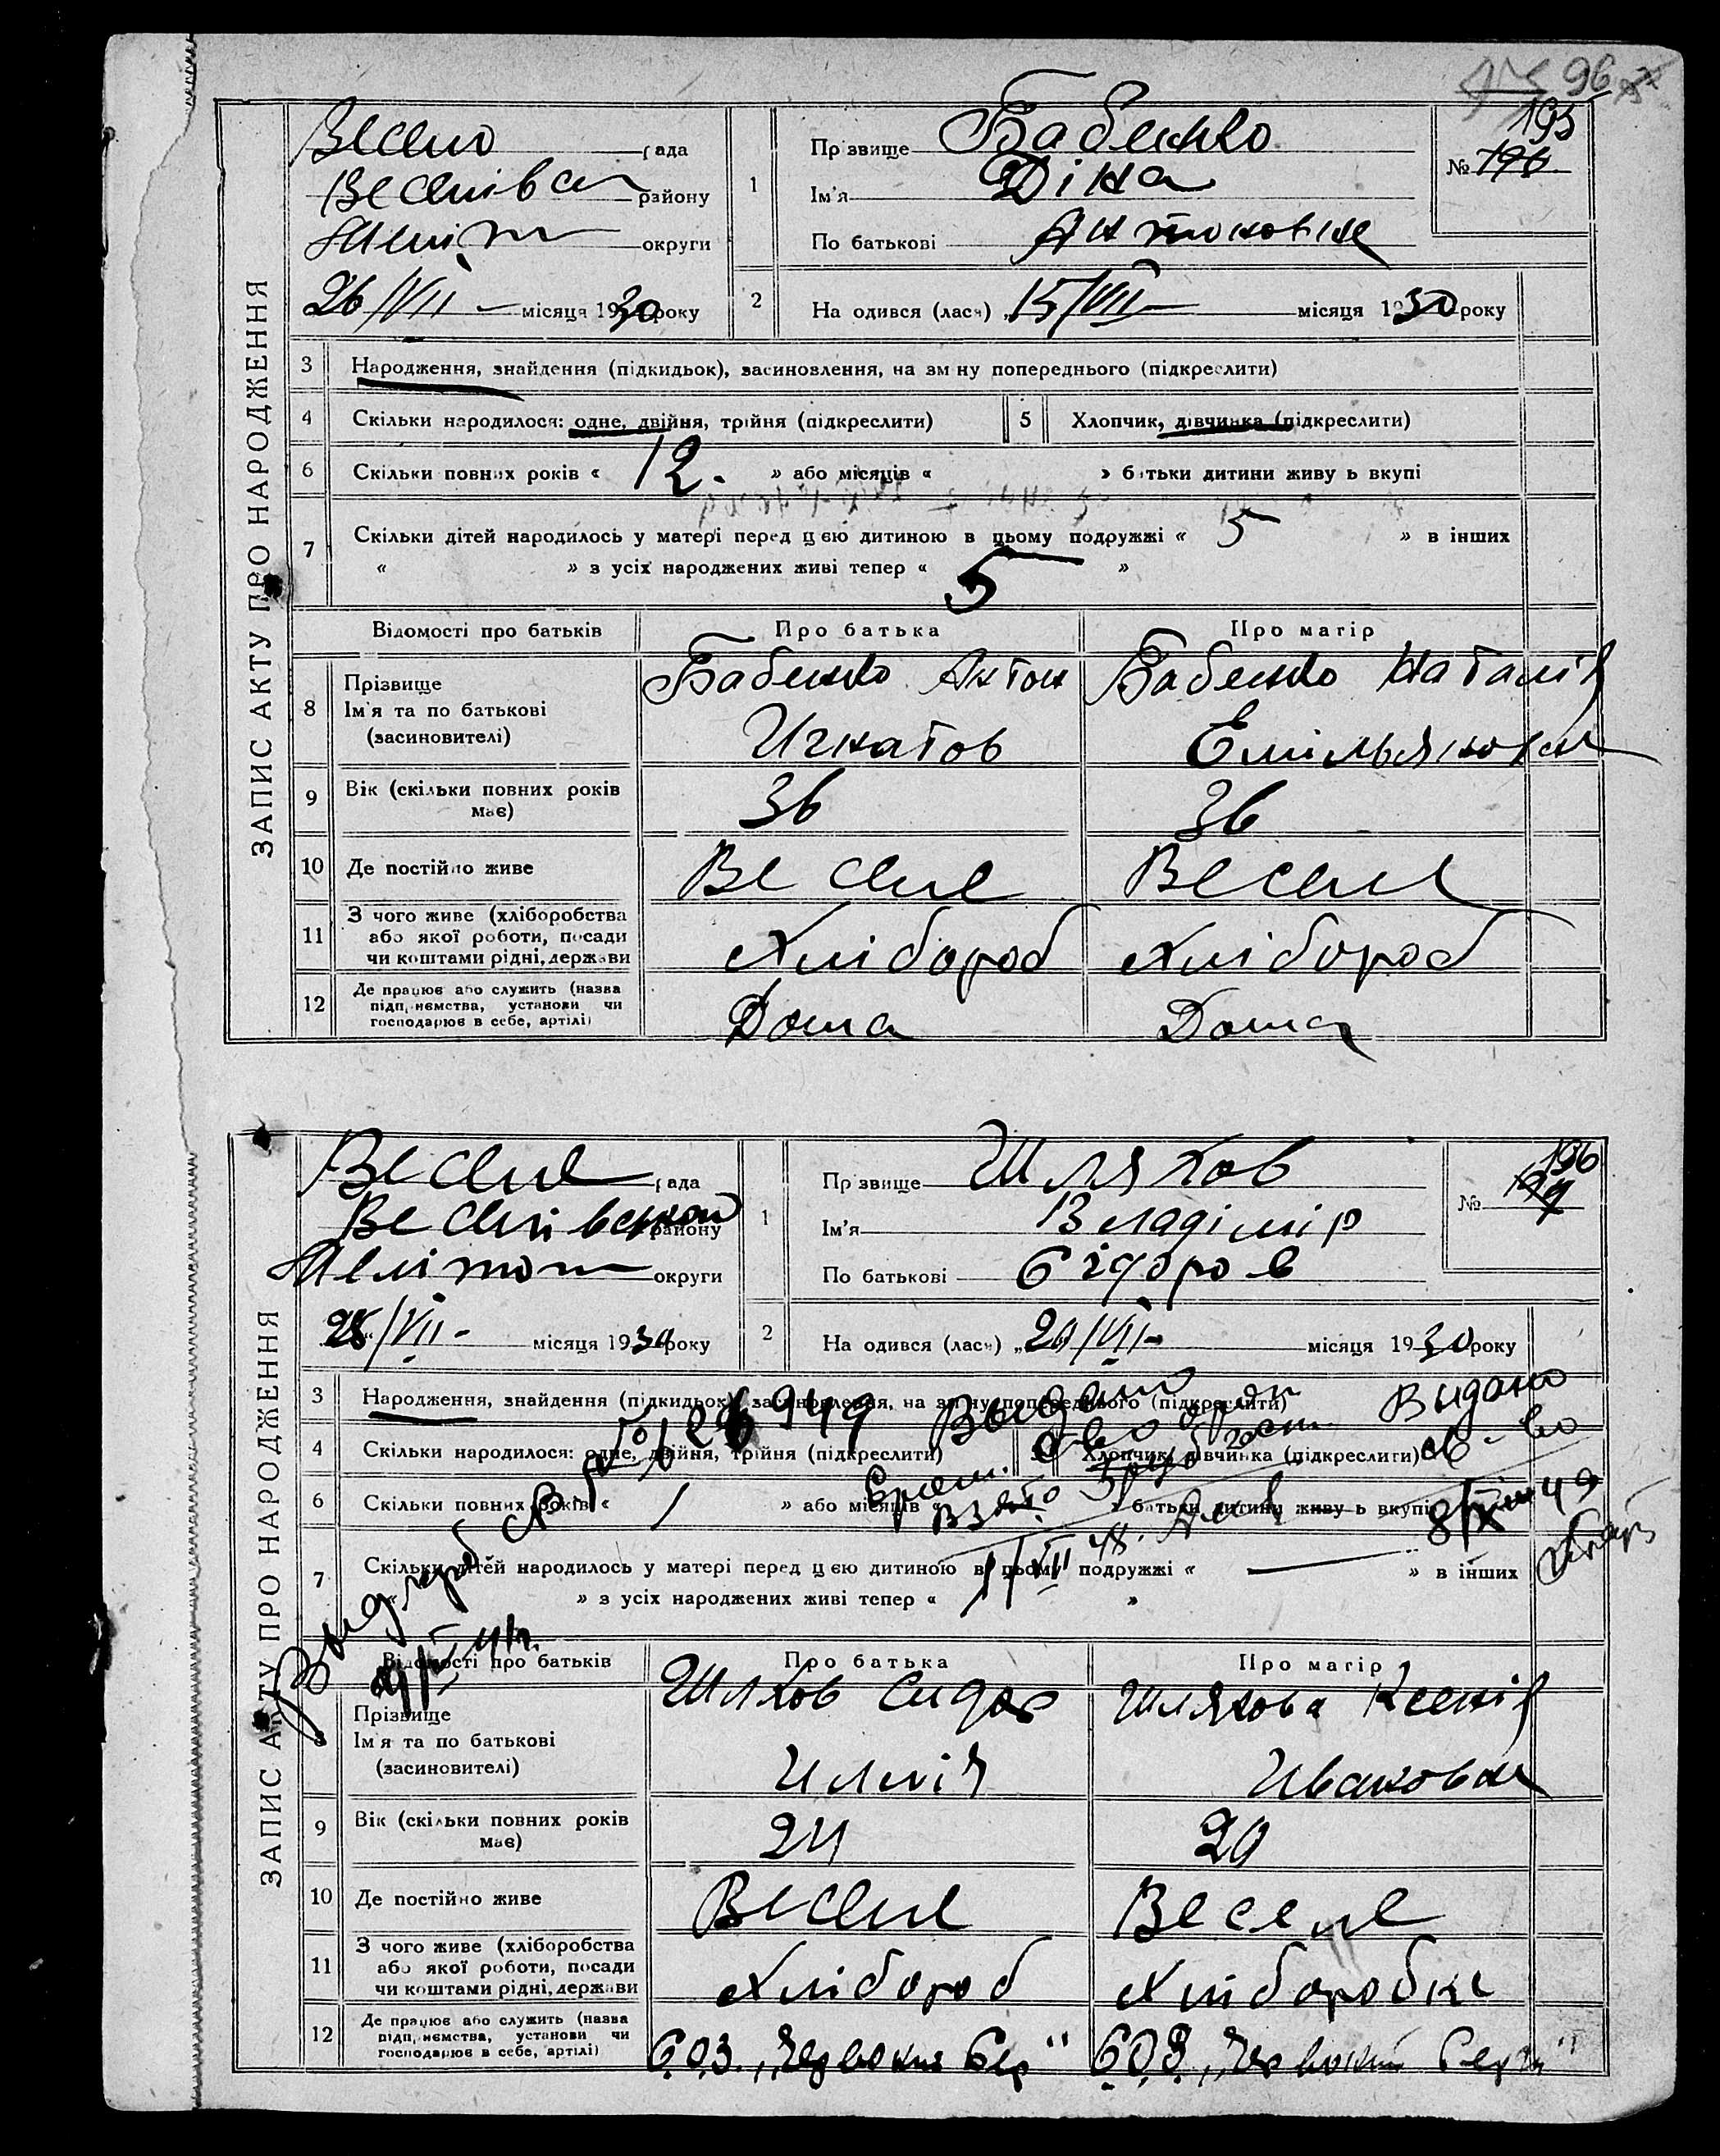 96
ЗАПИС АКТУ ПРО НАРОДЖЕННЯ
Весело рада
Веселівсь району
Меліт округи
26/VII місяця 1930 року
1 Прізвище Бабенко
Ім'я Діна
По батькові Антоновна
195
№ 196
2 Народився (лася) „15/VII місяця 1930 року
3 Народження, знайдення (підкидьок), засиновлення, на зміну попереднього (підкреслити)
4 Скільки народилося: одне, двійня, трійня (підкреслити)
5 Хлопчик, дівчинка (підкреслити)
6 Скільки повних років « 12. » або місяців « » батьки дитини живуть вкупі
7 Скільки дітей народилось у матері перед цією дитиною в цьому подружжі « 5 » в інших
« » з усіх народжених живі тепер « 5 »
Відомості про батьків Про батька Про матір
8 Прізвище
Ім'я та по батькові
(засиновителі)
Бабенко Антон
Игнатов
Бабенко Наталія
Емільяновна
9 Вік (скільки повних років має) 36 36
10 Де постійно живе Веселе Веселе
11 З чого живе (хліборобства
або якої роботи, посади
чи коштами рідні, держави
Хлібороб Хлібороб
12 Де працює або служить (назва
підприємства, установи чи
господарює в себе, артілі)
Дома Дома
ЗАПИС АКТУ ПРО НАРОДЖЕННЯ
Веселе рада
Веселівської району
Мелітоп округи
28/VII місяця 1930 року
1 Прізвище Шляхов
Ім'я Владімір
По батькові Сідоров
196
№ 197
2 Народився (лася) „20/VII місяця 1930 року
3 Народження, знайдення (підкидьок), засиновлення, на зміну попереднього (підкреслити)
4 Скільки народилося: одне, двійня, трійня (підкреслити)
5 Хлопчик, дівчинка (підкреслити)
6 Скільки повних років « 1 » або місяців « » батьки дитини живуть вкупі
7 Скільки дітей народилось у матері перед цією дитиною в цьому подружжі « — » в інших
« » з усіх народжених живі тепер « »
Видано
св-во
8/IX 49
Відомості про батьків Про батька Про матір
8 Прізвище
Ім'я та по батькові
(засиновителі)
Шлхов Сидор
Илліч
Шляхова Ксенія
Ивановна
9 Вік (скільки повних років має) 24 20
10 Де постійно живе Веселе Веселе
11 З чого живе (хліборобства
або якої роботи, посади
чи коштами рідні, держави
Хлібороб Хліборобка
12 Де працює або служить (назва
підприємства, установи чи
господарює в себе, артілі)
СОЗ „Червоний Сер" СОЗ „Червоний Серп"